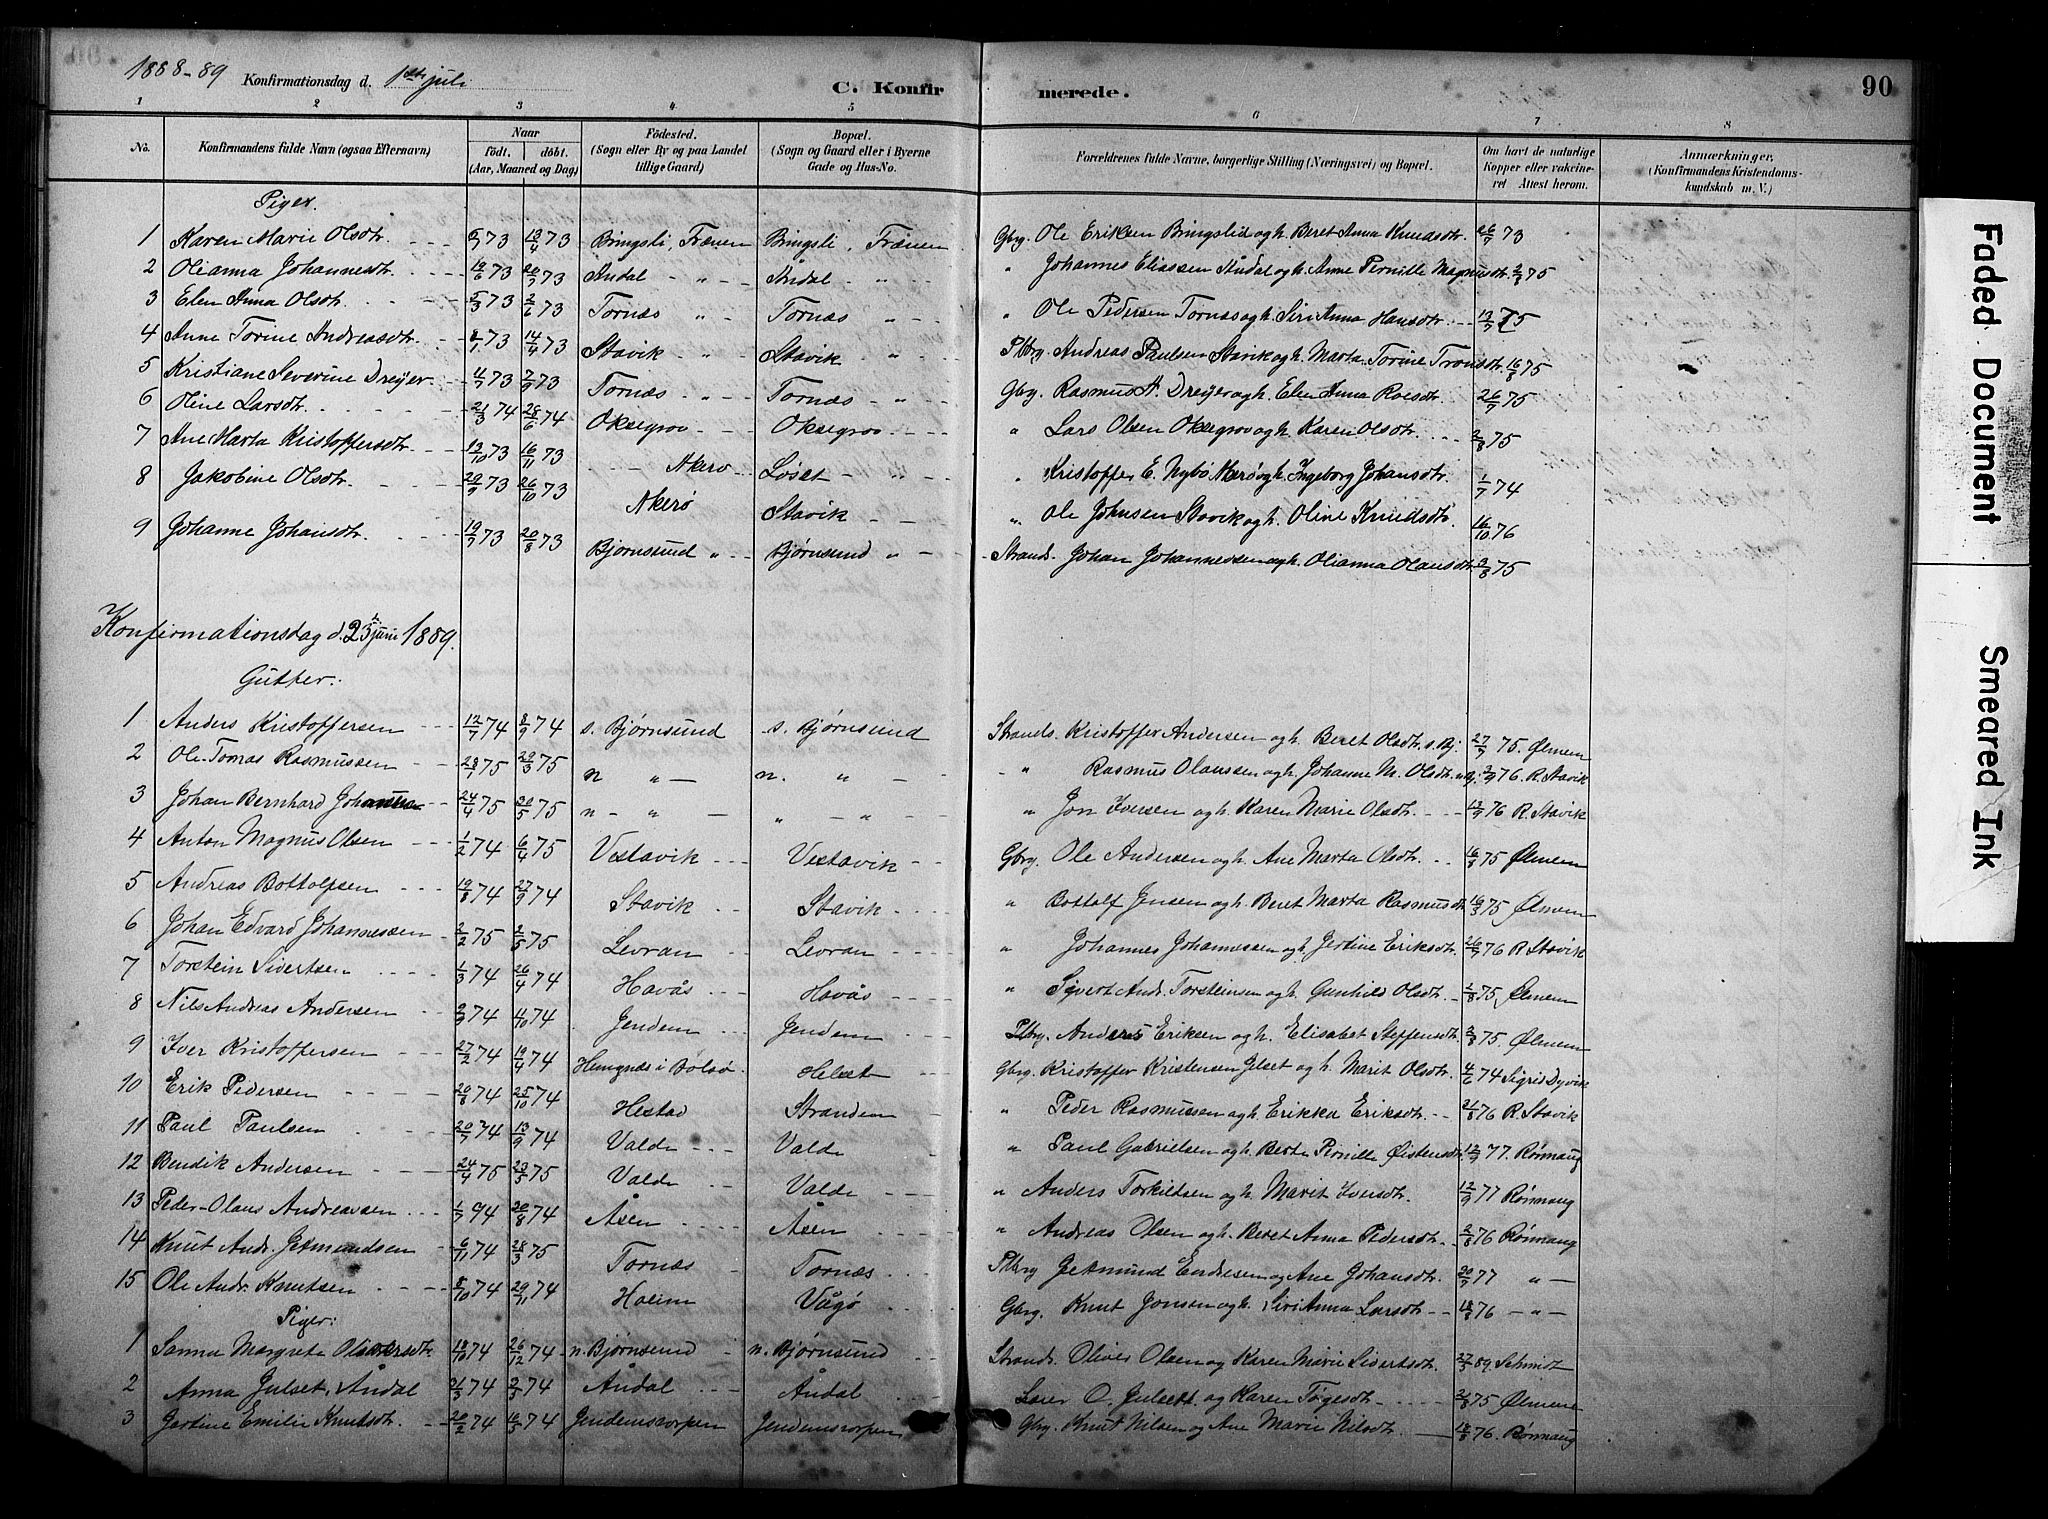 1888-89 Konfirmationsdag d. 1ste juli C. Konfirmerede. 90
1 2 3 4 5 6 7 8
No. Konfirmandens fulde Navn (ogsaa Efternavn) Naar født. døbt. (Aar, Maaned og Dag) Fødested. (Sogn eller By og paa Landet tillige Gaard) Bopæl. (Sogn og Gaard eller i Byerne Gade og Hus-No. Forældrenes fulde Navne, borgerlige Stilling (Næringsvei) og Bopæl. Om havt de naturlige Kopper eller vakcineret Attest herom. Anmærkninger. (Konfirmandens Kristendomskundskab m. V.)
Piger.
1 Karen Marie Olsdtr. 73 13/4 73 Bringsli, Frænen Bringsli, Frænen Gbrg. Ole Eriksen Bringsli og h. Beret Anna Knudsdtr. 26/7 73
2 Olianna Johannesdtr. 19/6 73 20/7 73 Aandal " Aandal " " Johannes Eliassen Aandal og h. Anne Pernille Magnusdtr. 75
3 Elen Anna Olsdtr. 5/3 73 2/6 73 Tornæs " Tornæs " " Ole Pedersen Tornæs og h. Siri Anna Hansdtr. 13/9 75
4 Anne Torine Andreasdtr. 73 14/4 73 Stavik " Stavik " Plbrg. Andreas Paulsen Stavik og h. Marta Torine Tronsdtr. 16/8 75
5 Kristiane Severine Dreyer 73 7/9 73 Tornæs " Tornæs " Gbrg. Rasmus A. Dreyer og h. Elen Anna Roesdtr. 26/7 75
6 Oline Larsdtr. 21/3 74 28/6 74 Oksegrov Oksegrov " Lars Olsen Oksegrov og h. Karen Olsdtr. 75
7 Ane Marta Kristoffersdtr. 13/10 73 16/11 73 Akerø Løset " " Kristoffer E. Nybø Akerø og h. Ingeborg Johansdtr. 1/7 74
8 Jakobine Olsdtr. 29/9 73 26/10 73 Akerø Stavik " Ole Johnsen Stavik og h. Oline Knudsdtr. 16/10 76
9 Johanne Johansdtr. 19/7 73 20/8 73 Bjørnsund " Bjørnsund " Strands. Johan Johannessen og h. Olianna Olausdtr. 75
Konfirmationsdag d. 23 juni 1889.
Gutter:
1 Anders Kristoffersen 12/7 74 8/9 74 s. Bjørnsund s. Bjørnsund Strands. Kristoffer Andersen og h. Beret Olsdtr. s. Bj. 27/7 75. Ølmem
2 Ole Tomas Rasmussen 28/1 75 29/3 75 n " n. " " Rasmus Olaussen og h. Johanne M. Olsdtr. 76 R. Stavik
3 Johan Bernhard Johansen 24/4 75 30/5 75 n " " " " Jon Iversen og h. Karen Marie Olsdtr. 13/9 76 R. Stavik
4 Anton Magnus Olsen 1/2 74 6/4 75 Vestavik Vestavik Gbrg. Ole Andersen og h. Ane Marta Olsdtr. 16/8 75 Ølmem
5 Andreas Bottolfsen 19/8 74 27/9 74 Stavik Stavik " Bottolf Jensen og h. Beret Marta Rasmusdtr. 75 Ølmem
6 Johan Edvard Johannessen 2/2 75 2/5 75 Levran Levran " Johannes Johannessen og h. Jertine Eriksdtr. 26/9 76 R. Stavik
7 Torstein Sivertsen 1/3 74 26/4 74 Havås Havås " Sivert Andr. Torsteinsen og h. Gunhild Olsdtr. 75, Ølmem
8 Nils Andreas Andersen 2/9 74 4/10 74 Jendem Jendem Plbrg. Anders Eriksen og h. Elisabet Steffensdtr. 75. Ølmem
9 Iver Kristoffersen 27/2 74 19/4 74 Hemgnæs i Bolsø Helset Gbrg. Kristoffer Kristensen Jelset og h. Marit Olsdtr. 4/6 74 Sigrid Dyvik
10 Erik Pedersen 20/8 74 25/10 74 Hestad Stranden " Peder Rasmussen og h. Erikka Eriksdtr. 76 R. Stavik
11 Paul Paulsen 20/7 74 13/9 74 Valde Valde " Paul Gabrielsen og h. Berte Pernille Øistensdtr. 12/9 77. Rønnaug
12 Bendik Andersen 24/4 75 23/5 75 Valde Valde " Anders Torkildsen og h. Marit Iversdtr. 12/9 77 Rønnaug
13 Peder Olaus Andreassen 1/7 94 20/8 74 Åsen Åsen " Andreas Olsen og h. Beret Anna Pedersdtr. 2/8 76 Rønnaug
14 Knut Andr. Getmundsen 6/11 74 28/3 75 Tornæs Tornæs Plbrg Getmund Endresen og Ane Johansdtr. 20/7 77 "
15 Ole Andr. Knutsen 8/10 74 29/11 74 Holim Vågø Gbrg. Knut Jonsen og h. Siri Anna Larsdtr. 18/8 76 "
Piger:
1 Sanna Margrete Oliversdtr. 18/10 74 26/12 74 n. Bjørnsund n. Bjørnsund Strands. Oliver Olsen og Karen Marie Sivertsdtr. 27/3 89 Schmidt
2 Anna Julset, Åndal 74 74 Åndal Åndal Lærer O. Julset og Karen Tøgesdtr. 75 Ølmem
3 Jertine Emilie Knutsdtr. 20/2 74 10/5 74 Jendemsvorpen Jendemsvorpen Gbrg. Knut Nilsen og Ane Marie Nilsdtr. 18/8 76. Rønnaug
Faded Document
Smeared Ink